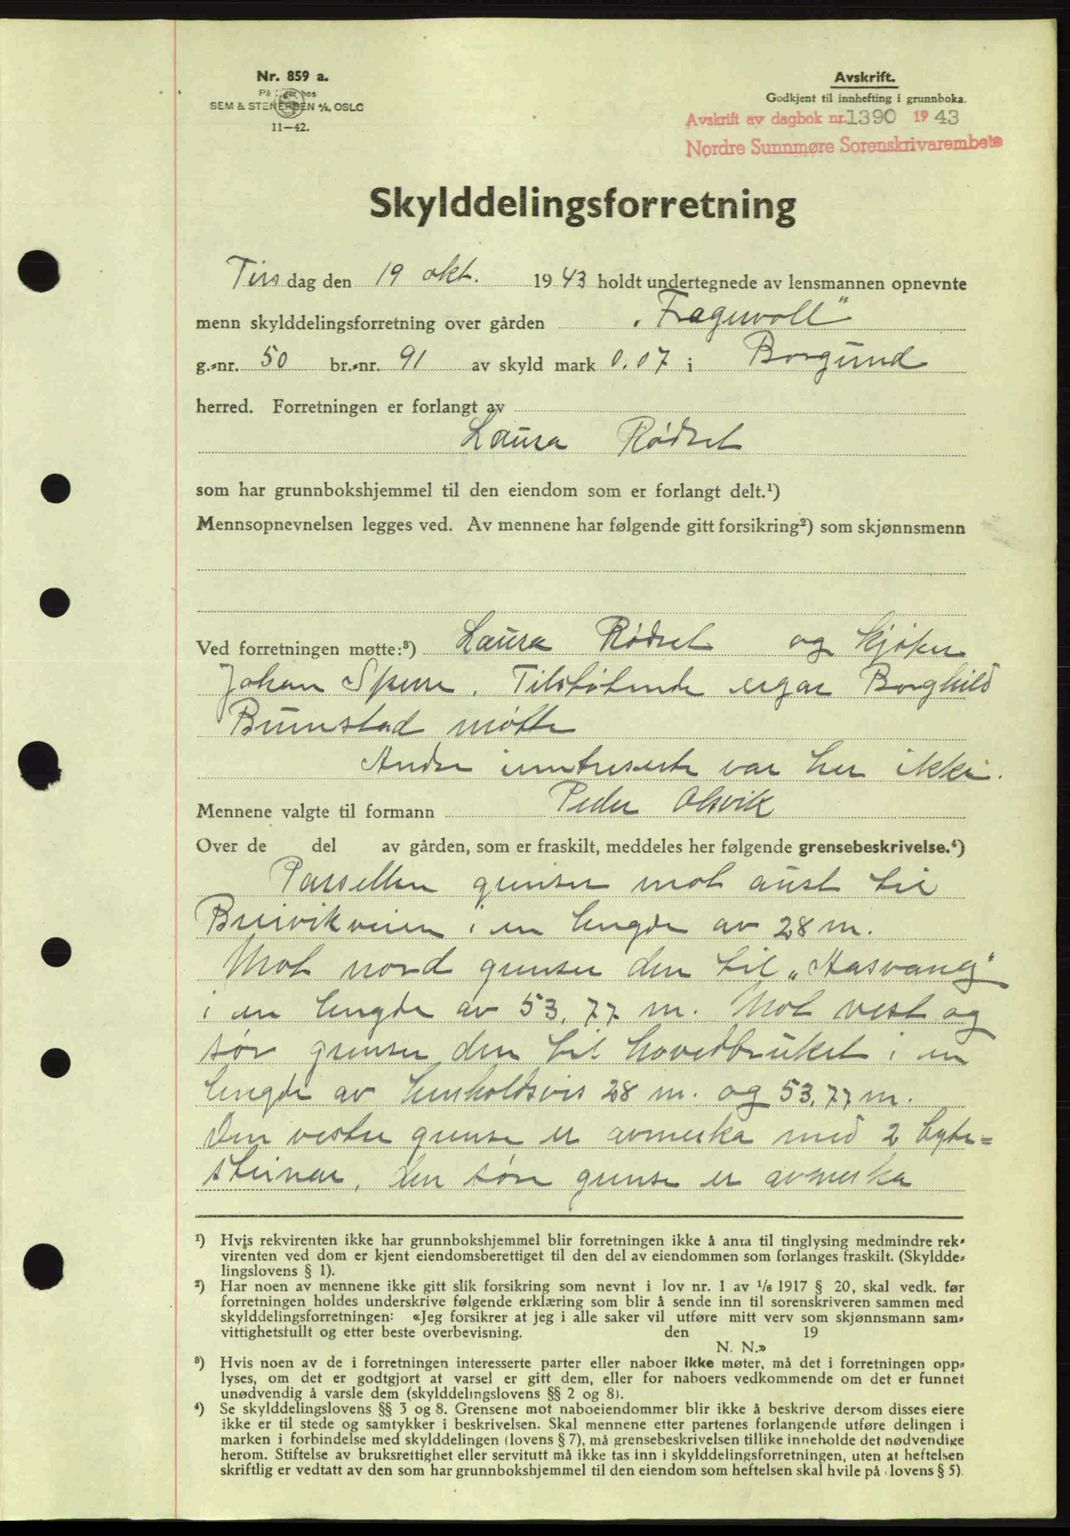 Nr. 859 a.
SEM & STENERSEN A/S, OSLO
11—42.
Avskrift.
Godkjent til innhefting i grunnboka.
Avskrift av dagbok nr. 1390 1943
Nordre Sunnmøre Sorenskrivarembete
Skylddelingsforretning
Tirsdag den 19 okt. 1943 holdt undertegnede av lensmannen opnevnte
menn skylddelingsforretning over gården „Fagervoll"
g.-nr. 50 br.-nr. 91 av skyld mark 0.07 i Borgund
herred. Forretningen er forlangt av
Laura Rødset
som har grunnbokshjemmel til den eiendom som er forlangt delt.¹)
Mennsopnevnelsen legges ved. Av mennene har følgende gitt forsikring²) som skjønnsmenn
Ved forretningen møtte:³) Laura Rødset og kjøper
Johan Sperre. Tilstøtende eigar Borghild
Bunstad møtte
Andre interesserte var her ikke.
Mennene valgte til formann Peder Olsvik
Over de del av gården, som er fraskilt, meddeles her følgende grensebeskrivelse.⁴)
Parsellen grenser mot aust til
Breivikveien i en lengde av 28 m.
Mot nord grenser den til „Aasvang"
i en lengde av 53,77 m. Mot vest og
sør grenser den til hovedbruket i en
lengde av henholdsvis 28 m. og 53,77 m.
Den vestre grense er avmerka med 2 byte=
steinar, den søre grense er avmerka
¹) Hvis rekvirenten ikke har grunnbokshjemmel blir forretningen ikke å anta til tinglysing medmindre rek-
virenten ved dom er kjent eiendomsberettiget til den del av eiendommen som forlanges fraskilt. (Skyldde-
lingslovens § 1).
²) Har noen av mennene ikke gitt slik forsikring som nevnt i lov nr. 1 av 1/6 1917 § 20, skal vedk. før
forretningen holdes underskrive følgende erklæring som blir å sende inn til sorenskriveren sammen med
skylddelingsforretningen: «Jeg forsikrer at jeg i alle saker vil utføre mitt verv som skjønnsmann sam-
vittighetsfullt og etter beste overbevisning. den 19
N. N.»
³) Hvis noen av de i forretningen interesserte parter eller naboer ikke møter, må det i forretningen opp-
lyses, om det er godtgjort at varsel er gitt dem, eller for naboers vedkommende om det er funnet
unødvendig å varsle dem (skylddelingslovens §§ 2 og 8).
⁴) Se skylddelingslovens §§ 3 og 8. Grensene mot naboeiendommer blir ikke å beskrive dersom disses eiere
ikke er til stede og samtykker i beskrivelsen. Skal mennene etter partenes forlangende utføre delingen i
marken i forbindelse med skylddelingen (lovens § 7), må grensebeskrivelsen tillike inneholde det nødvendige
herom. Stiftelse av bruksrettighet eller servitutt må ikke tas inn i skylddelingsforretningen, uten at heftelsen
skriftlig er vedtatt av den som har grunnbokshjemmel til den eiendom som heftelsen skal hvile på (lovens § 5).